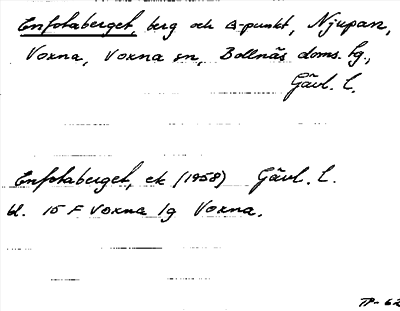 Enfotaberget, berg och △-punkt, Njupan,
Voxna, Voxna sn, Bollnäs doms. hg.,
Gävl. l.
Enfotaberget, ek (1958) Gävl. l.
bl. 15 F Voxna 1g Voxna.
TP-62